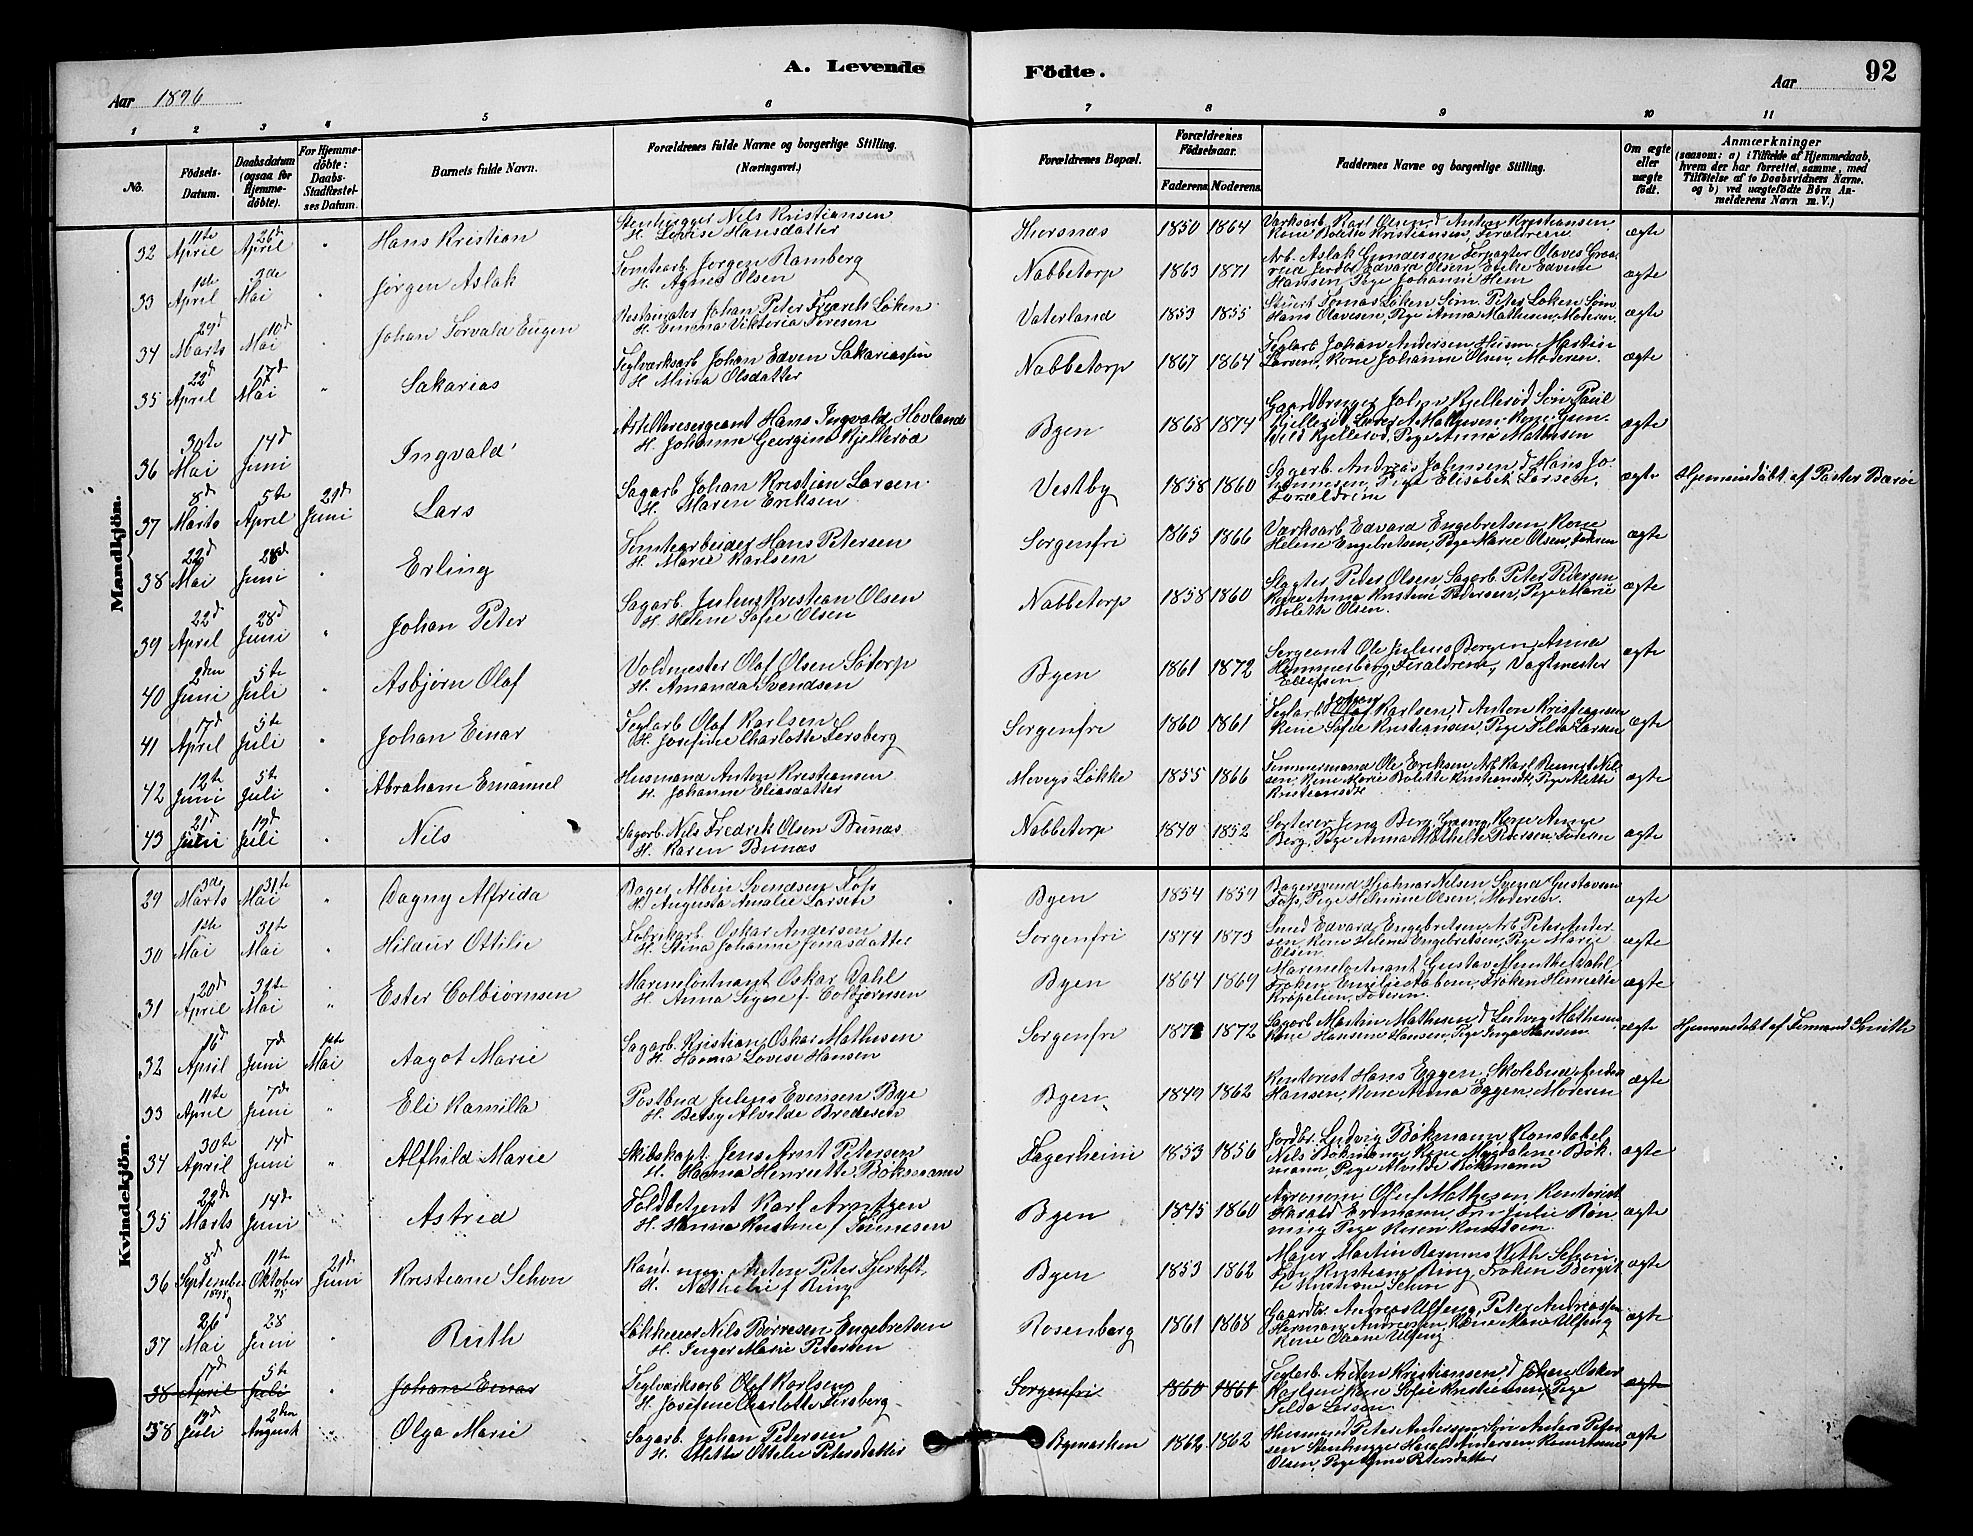 A. Levende
Födte.
92
Aar 1896
Aar
1 2 3 4 5 6 7 8 9 10 11
No.
Födsels-
Datum.
Daabsdatum
(ogsaa for
Hjemme-
döbte).
For Hjemme-
döbte:
Daabs-
Stadfæstel-
ses Datum.
Barnets fulde Navn.
Forældrenes fulde Navne og borgerlige Stilling.
(Næringsvei.)
Forældrenes Bopæl.
Forældrenes
Födselsaar.
Faderens. Moderens.
Faddernes Navne og borgerlige Stilling.
Om ægte
eller
uægte
födt.
Anmærkninger
(saasom: a) i Tilfælde af Hjemmedaab,
hvem der har forrettet samme, med
Tilföielse af to Daabsvidners Navne,
og b) ved uægtefödte Börn An-
melderens Navn m. V.)
Mandkjön.
32 11te April 26d April " Hans Kristian
Stenhugger Nils Kristiansen
H. Lovise Hansdatter
1850 1864
Varksarb. Karl Olsen, d Anton Kristiansen
Kone Bolette Kristiansen, Forældrene
ægte
33 1ste April 3de Mai " Jørgen Aslak
Tomtearb. Jørgen Ramberg
H. Agnes Olsen
Nabbetorp 1863 1871
Arb. Aslak Gundersen Forpagter Olaves
Edvard Olsen
Hansen, Pige Johanne Hem
ægte
34 29d Marts 10d Mai " Johan Torvald Eugen
Johan Peter Løken
H. Emma Viktoria Iversen
Vaterland 1853 1855
Stuert Tomas Løken Søm. Peter Løken Søm
Hans Olavesen, Pige Anna Mathisen, Moderen.
ægte
35 22d April 17d Mai " Sakarias
Teglverksarb Johan Edven Sakariassen
H. Mina Olsdatter
Nabbetorp 1867 1864
Teglarb. Johan Andersen Husm Martin
Larsen, Kone Johanne Olsen, Moderen.
ægte
36 30te Mai 14d Juni Ingvald
Hans Ingvald Hovland
H. Johanne Georgine Kjellerød
Byen 1868 1874
Gaardbruger Johan Kjellerød Søn Paul
Kjellerød, Kjellerød, Pige Anna Mathisen
ægte
37 8d Marts 5te April 21d Juni Lars
Sagarb Johan Kristian Larsen
H. Maren Eriksen
Vestby 1858 1860
Sagarb. Andreas Johnsen, d Hans Jo-
hannesen, Pige Elisabet Larsen,
Forældrene
ægte
Hjemmedøbt af Pastor Barøe
38 22d Mai 28d Juni " Erling
Tomtearbeider Hans Petersen
H. Marie Karlsen
Sorgenfri 1865 1866
Varksarb. Edvard Engebretsen Kone
Helene Engebretsen, Pige Marie Olsen, Faderen
ægte
39 22d April 28d Juni " Johan Peter
Sagarb. Julius Kristian Olsen
H. Helene Sofie Olsen
Nabbetorp 1858 1860
Slagter Peter Olsen, Sagarb. Peter Pedersen
Kone Anna Kristine Pedersen, Pige Marie
Bolette Olsen.
ægte
40 2den Juni 5te Juli " Asbjørn Olaf
Voldmester Olaf Olsen Sótorp
H. Amanda Svendsen
Byen 1861 1872
Sergeant Ole Julius Borgen, Anna
Hammerberg, Forældrene, Vagtmester
Ellefsen
ægte
41 17d April 5te Juli " Johan Einar
Teglarb Olaf Karlsen
H. Josefine Charlotte Fersberg
Sorgenfri 1860 1861
Teglarb Johan Karlsen, d Anton Kristiansen
Kone Sofie Kristiansen, Pige Tilda Larsen
ægte
42 12te Juni 5te Juli " Abraham Emanuel
Husmand Anton Kristiansen
H. Johanne Eliasdatter
Løkke 1855 1866
Tømmermand Ole Eriksen Arb Karl Nil-
sen, Kone Marie Bolette Kristiansdt, Pige Alette
Kristiansdt
ægte
43 21d Juni 19d Juli " Nils
Sagarb. Nils Fredrik Olsen Bunæs
H. Karen Bunæs
Nabbetorp 1840 1852
Sorterer Jens Berg, Kone Anne
Berg, Pige Anna Mathilde Pedersen, Faderen
ægte
Kvindekjön.
29 3de Marts 31te Mai " Dagny Alfrida
Bager, Albin Svendsen Foss
H. Augusta Amalie Larsen
Byen 1854 1859
Bagersvend Hjalmar Nilsen Svend Gustavsen
Foss, Pige H Anine Olsen, Moderen.
ægte
30 1ste Mai 31te Mai " Hildur Ottilie
Fabrikarb. Oskar Andersen
H. Stina Johanne Jonasdatter
Sorgenfri 1874 1873
Smed Edvard Engebretsen, Arb Peter Ander-
sen, Kone Helene Engebretsen, Pige Marie
Olsen
ægte
31 20d April 31te Mai " Ester Colbiørnsen
Marineløitnant Oskar Dahl
H. Anna Signe f. Colbjørnsen
Byen 1864 1869
Marineløitnant Gustav Munthe Dahl
Frøken Emilie Frøken Henriette
Krøpelien, Faderen.
ægte
32 16d April 7d Juni 1ste Mai Aagot Marie
Sagarb. Kristian Oskar Mathisen
H. Hanna Lovise Hansen
Sorgenfri 1872
Sagarb Martin Mathisen d Ludvig Mathisen
Kone Hansine Hansen, Pige Inga Hansen
ægte
Hjemmedøbt af Jormand Smitte
33 11te April 7d Juni " Eli Kamilla
Postbud Julius Evensen Bye
H. Betsy Alvilde Bredesen
Byen 1849 1862
Kontorist Hans Eggen, Skolebud
Hansen, Kone Anna Eggen Moderen
ægte
34 30te April 14d Juni " Alfhild Marie
Skibskapt. Jens Arnt Petersen
H. Hanna Henriette Bøkmann
Fagerheim 1853 1856
Jordbr. Ludvig Bøkmann, Konstabel
Nils Bøkmann, Kone Magdalene Bøk-
mann, Pige Alvilde Bøkmann
ægte
35 22d Marts 14d Juni " Astrid
Toldbetjent Karl Arntzen
H. Hanna Kristine f Tønnesen
Byen 1845 1860
Agronom Oluf Mathisen Kontorist
Harald Ermann, Fru Julie Røn-
ning Pige Karen Knudsen.
ægte
36 8d September 1895 11te Oktober 95 21d Juni Kristiane Schøn
Anton Peter Fjertoft
H. Nathalie f Ring
Byen 1853 1862
Major Martin Rasmus With Schøn
Fru Kristiane Ring, Frøken Bergit-
te Kristiane Schøn
ægte
37 26d Mai 28 Juni Ruth
Nils Børresen Engebretsen
H. Inger Marie Petersen
Rosenberg 1861 1868
Gaardbr. Andreas Ulfeng, Peter Andreassen
Herman Andreassen, Kone Marie Ulfeng
Kone Ulfeng
ægte
38 17d April 5te Juli " Johan Einar
Teglværksarb Olaf Karlsen
H. Josefine Charlotte Fersberg
Sorgenfri 1860 1861
Teglarb. Anton Kristiansen, d Johan Oskar
Karlsen Kone Sofie Kristiansen, Pige
Tilda Larsen.
ægte
38 19d Juli 2den August " Olga Marie
Sagarb. Johan Pedersen
H. Mathea Ottilie Petersdatter
Bymarken 1862 1862
Husmand Peter Andersen, Søn Anders Peter-
sen Stenhugger Harald Andersen Kone Anne
Olsen, Pige Petersdatter
ægte